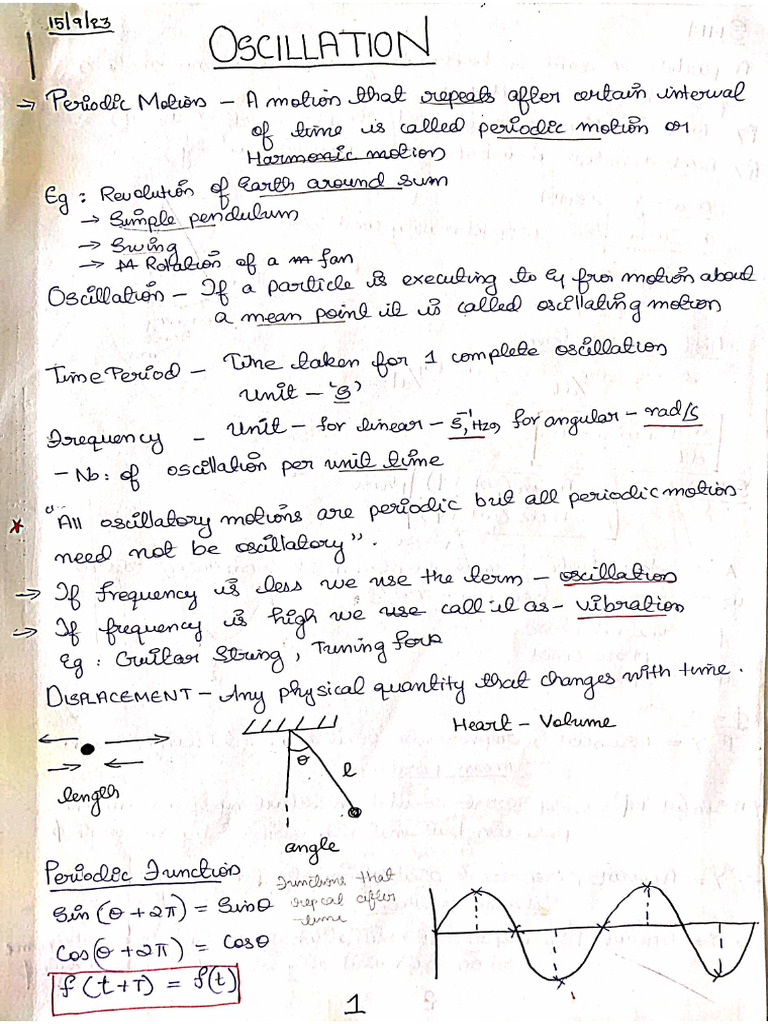 15/9/23
OSCILLATION
→ Periodic Motion – A motion that repeats after certain interval
of time is called periodic motion or
Harmonic motion
Eg : Revolution of Earth around sun
→ Simple pendulum
→ Swing
→ Rotation of a fan
Oscillation – If a particle is executing to & fro motion about
a mean point it is called oscillating motion
Time Period – Time taken for 1 complete oscillation
Unit – 'S'
Frequency – Unit – for linear – S⁻¹, Hz, for angular – rad/s
– No: of oscillation per unit time
* "All oscillatory motions are periodic but all periodic motion
need not be oscillatory".
→ If frequency is less we use the term – oscillation
→ If frequency is high we use call it as – vibration
Eg : Guitar String, Tuning fork
DISPLACEMENT – Any physical quantity that changes with time.
Heart – Volume
θ
l
length
angle
Periodic Function
Functions that
repeat after
time
Sin(θ + 2π) = Sinθ
Cos(θ + 2π) = Cosθ
f(t+T) = f(t)
1